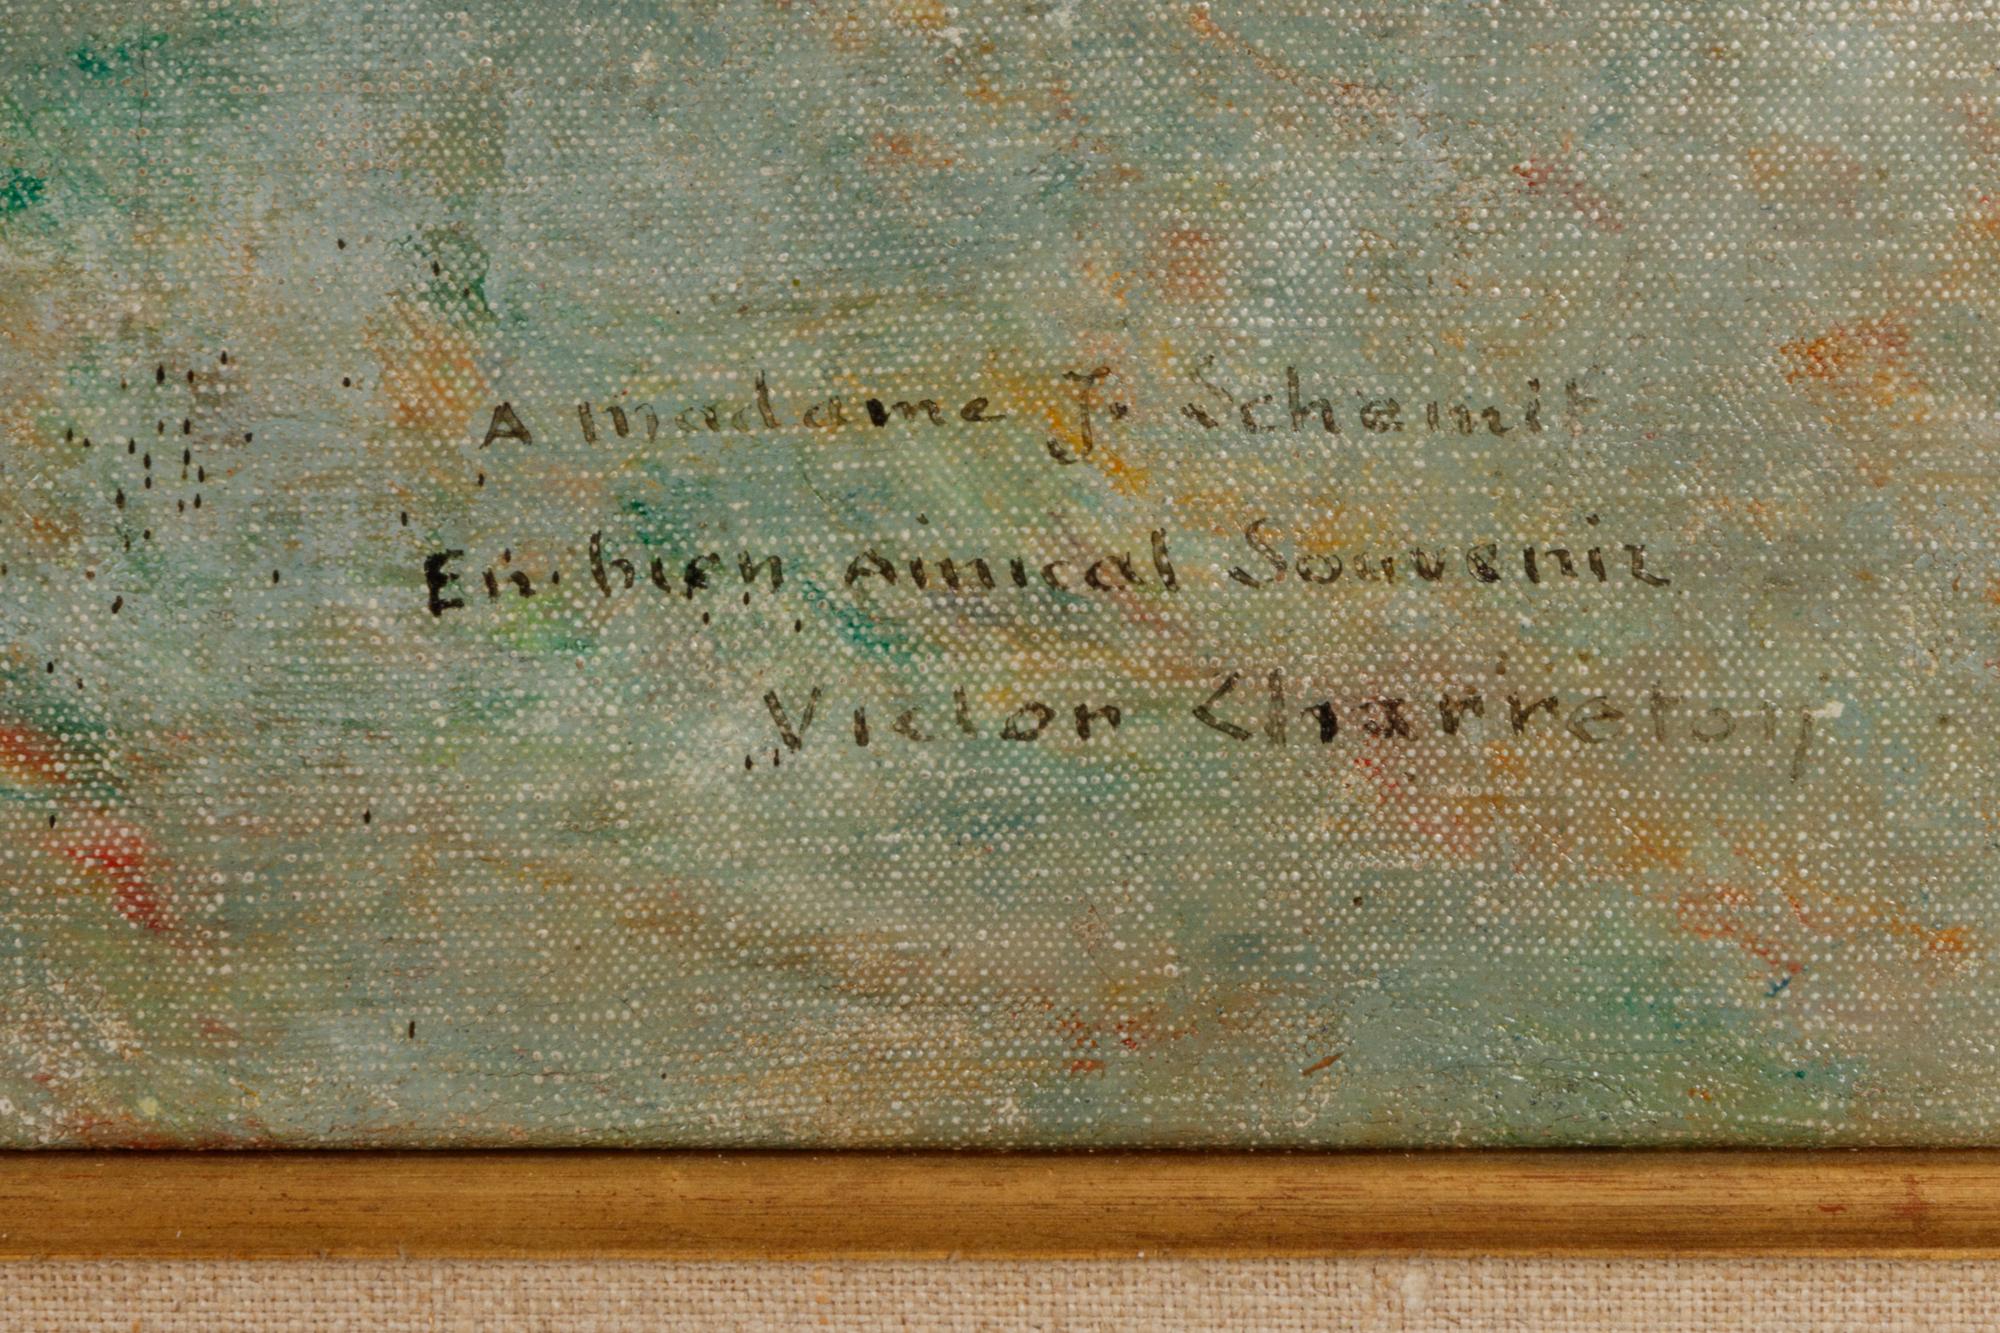 A madame J. Schemit
En bien amical Souvenir
Victor Charreton